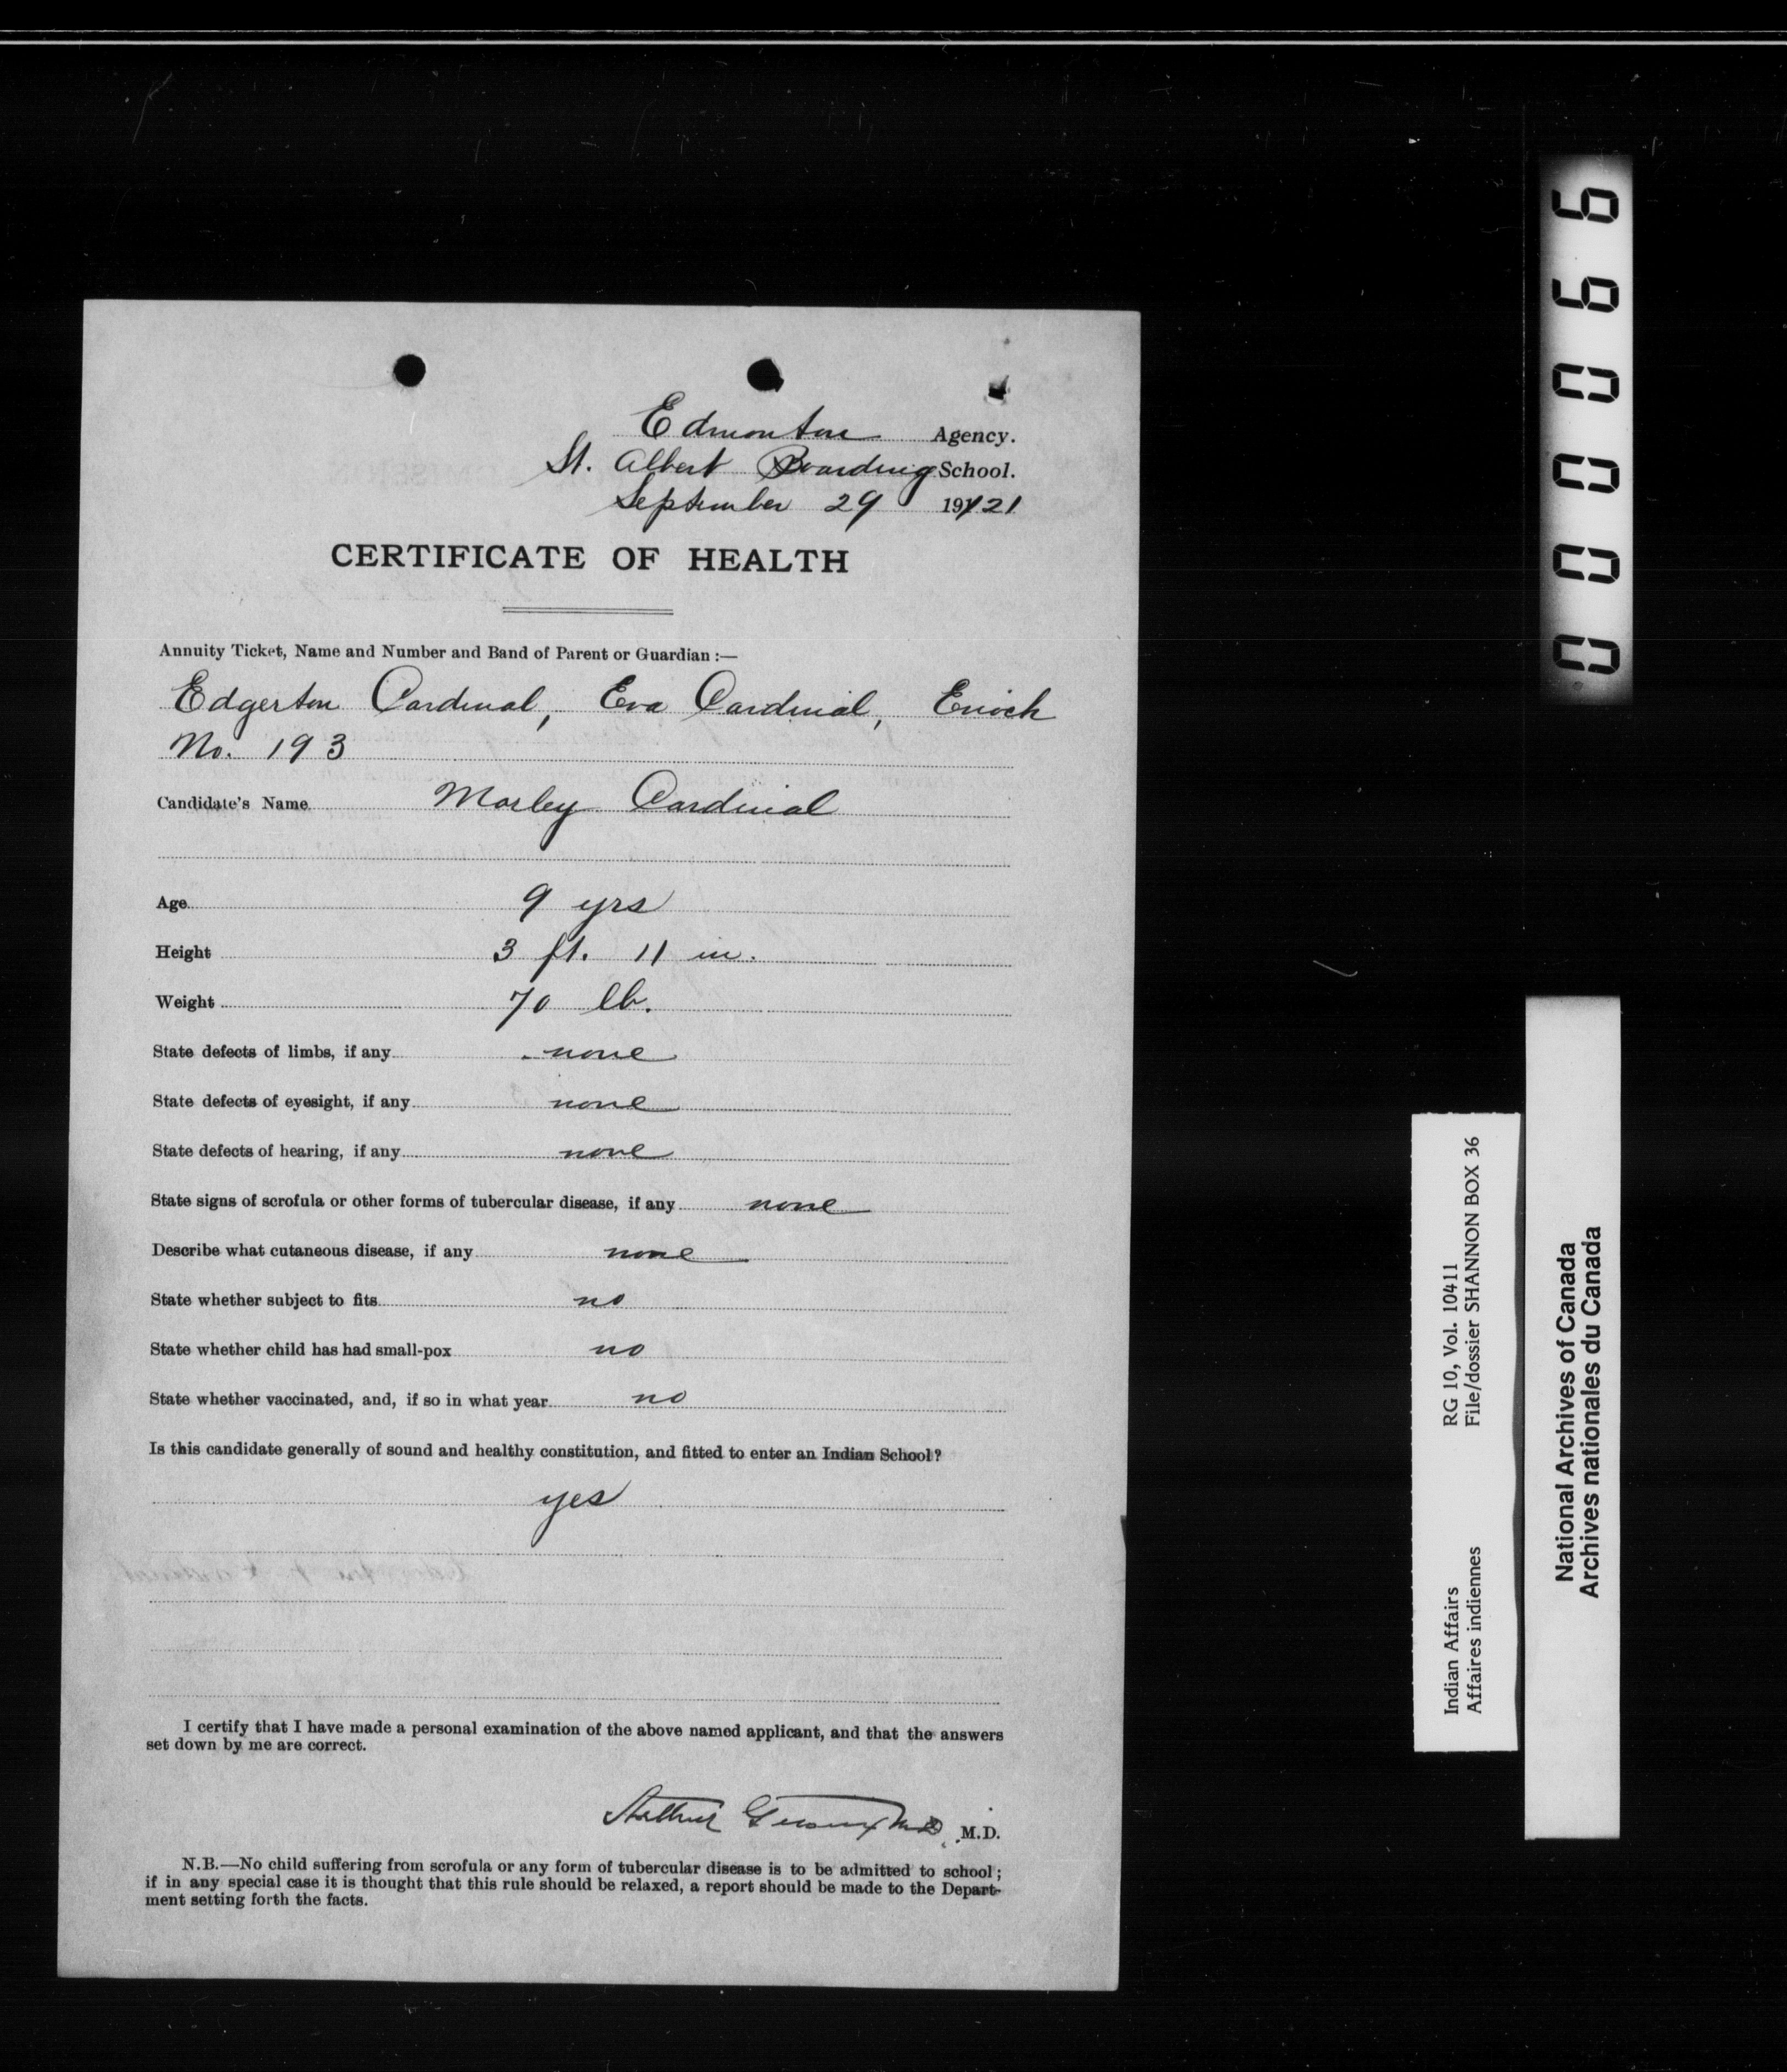 Edmonton Agency.
St. Albert Boarding School.
September 29 1921
CERTIFICATE OF HEALTH
Annuity Ticket, Name and Number and Band of Parent or Guardian :—
Edgerton Cardinal, Eva Cardinal, Enoch
No. 193
Candidate's Name Morley Cardinal
Age 9 yrs
Height 3 ft. 11 in.
Weight 70 lb.
State defects of limbs, if any none
State defects of eyesight, if any none
State defects of hearing, if any none
State signs of scrofula or other forms of tubercular disease, if any none
Describe what cutaneous disease, if any none
State whether subject to fits no
State whether child has had small-pox no
State whether vaccinated, and, if so in what year no
Is this candidate generally of sound and healthy constitution, and fitted to enter an Indian School?
yes
I certify that I have made a personal examination of the above named applicant, and that the answers
set down by me are correct.
Arthur MD M.D.
N.B.—No child suffering from scrofula or any form of tubercular disease is to be admitted to school;
if in any special case it is thought that this rule should be relaxed, a report should be made to the Depart-
ment setting forth the facts.
000066
Indian Affairs RG 10, Vol. 10411
Affaires indiennes File/dossier SHANNON BOX 36
National Archives of Canada
Archives nationales du Canada